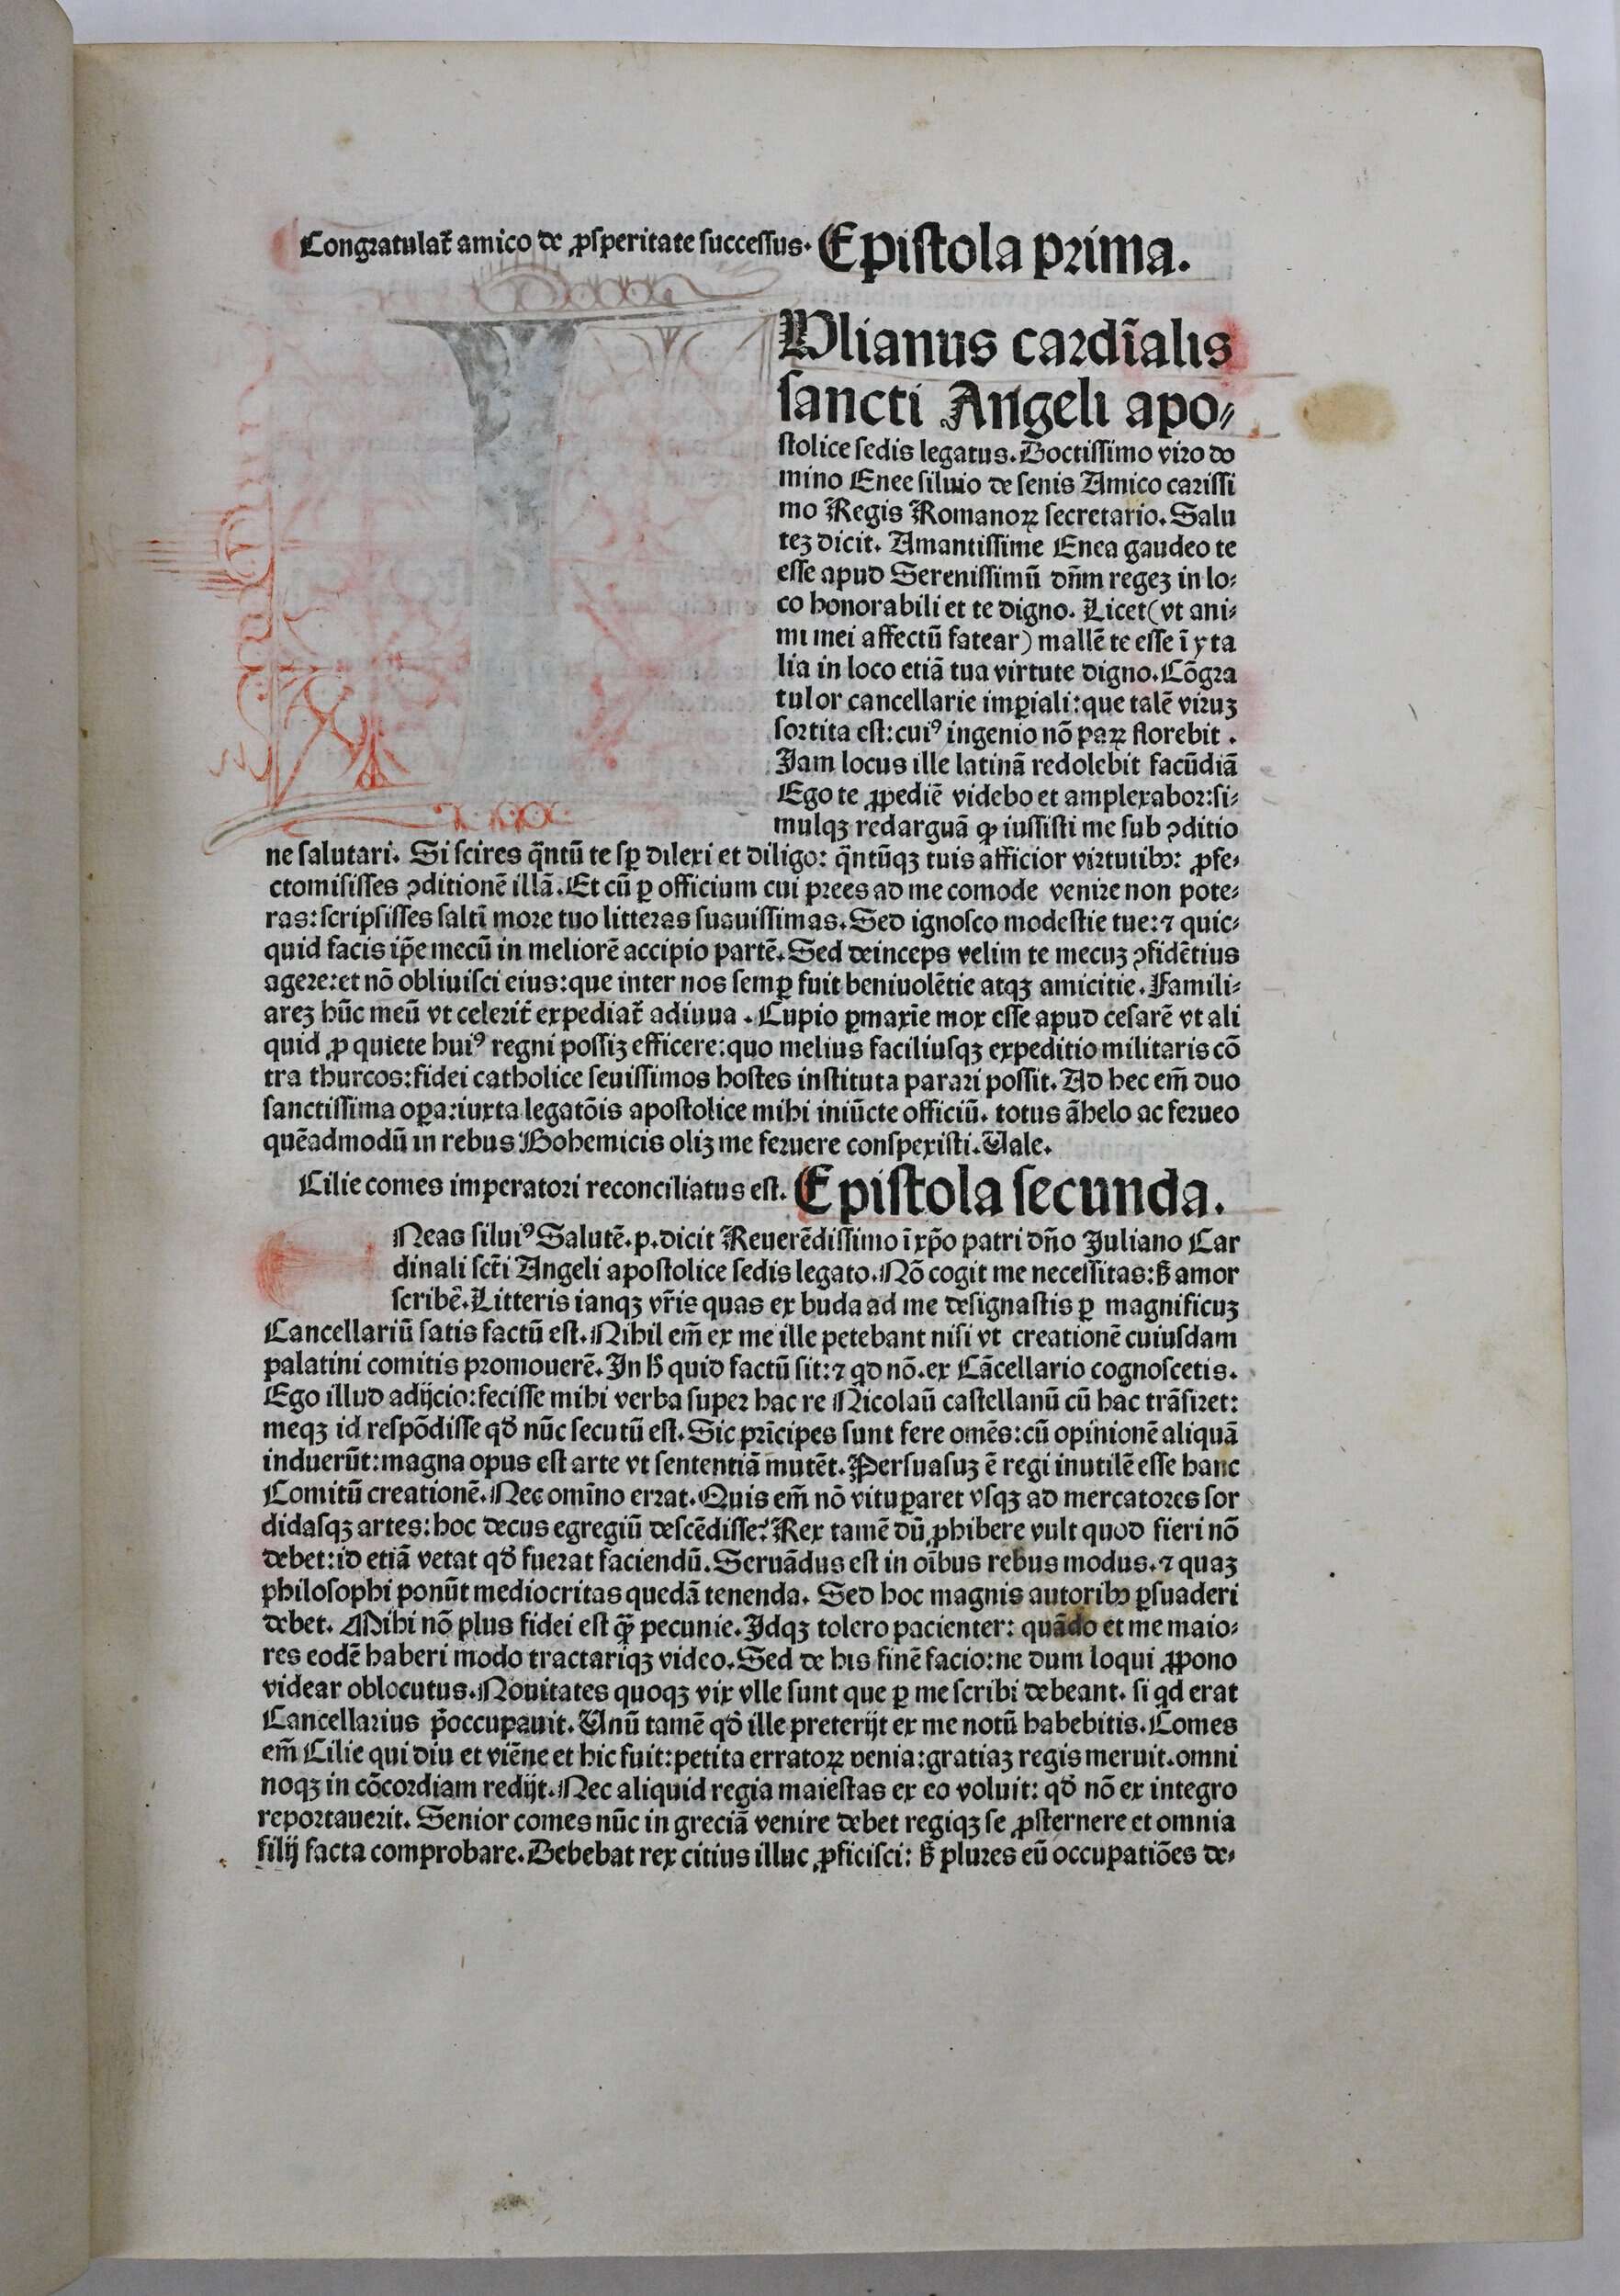 Congratulat̃ amico de ꝓsperitate successus. Epistola prima.
Ulianus cardīalis
sancti Angeli apo⸗
stolice sedis legatus. Doctissimo viro do
mino Enee siluio de senis Amico carissi
mo Regis Romanoꝝ secretario. Salu
teꝫ dicit. Amantissime Enea gaudeo te
esse apud Serenissimū dn̄m regeꝫ in lo⸗
co honorabili et te digno. Licet (vt ani⸗
mi mei affectū fatear) mallē te esse ī yta
lia in loco etiā tua virtute digno. Cōgra
tulor cancellarie imꝑiali: que talē viruꝫ
sortita est: cuiꝰ ingenio nō paꝝ florebit.
Jam locus ille latinā redolebit facūdiā
Ego te ꝓpediē videbo et amplexabor: si⸗
mulqꝫ redarguā ꝙ iussisti me sub ꝯditio
ne salutari. Si scires q̄ntū te sꝑ dilexi et diligo: q̄ntūqꝫ tuis afficior virtutibꝫ: ꝓfe⸗
cto misisses ꝯditionē illā. Et cū ꝑ officium cui prees ad me comode venire non pote⸗
ras: scripsisses saltī more tuo litteras suauissimas. Sed ignosco modestie tue: ⁊ quic⸗
quid facis ip̄e mecū in meliorē accipio partē. Sed deinceps velim te mecuꝫ ꝯfidētius
agere: et nō obliuisci eius: que inter nos semꝑ fuit beniuolētie atqꝫ amicitie. Famili⸗
areꝫ hūc meū vt celerit̃ expediat̃ adiuua. Cupio ꝑmaxīe mox esse apud cesarē vt ali
quid ꝓ quiete huiꝰ regni possiꝫ efficere: quo melius faciliusqꝫ expeditio militaris cō
tra thurcos: fidei catholice seuissimos hostes instituta parari possit. Ad hec em̄ duo
sanctissima oꝑa: iuxta legatōis apostolice mihi iniūcte officiū. totus āhelo ac ferueo
quēadmodū in rebus Bohemicis oliꝫ me feruere conspexisti. Vale.
Cilie comes imperatori reconciliatus est. Epistola secunda.
Neas siluiꝰ Salutē. p. dicit Reuerēdissimo ī xp̄o patri dn̄o Juliano Car
dinali sct̄i Angeli apostolice sedis legato. Nō cogit me necessitas: ß amor
scribē. Litteris ianqꝫ vr̄is quas ex buda ad me designastis ꝑ magnificuꝫ
Cancellariū satis factū est. Nihil em̄ ex me ille petebant nisi vt creationē cuiusdam
palatini comitis promouerē. In h̄ quid factū sit: ⁊ qd nō. ex Cācellario cognoscetis.
Ego illud adijcio: fecisse mihi verba super hac re Nicolaū castellanū cū hac trāsiret:
meqꝫ id respōdisse qđ nūc secutū est. Sic prīcipes sunt fere omēs: cū opinionē aliquā
induerūt: magna opus est arte vt sententiā mutēt. Persuasuꝫ ē regi inutilē esse hanc
Comitū creationē. Nec omīno errat. Quis em̄ nō vituꝑaret vsqꝫ ad mercatores sor
didasqꝫ artes: hoc decus egregiū descēdisse? Rex tamē dū ꝓhibere vult quod fieri nō
debet: id etiā vetat qđ fuerat faciendū. Seruādus est in oībus rebus modus. ⁊ quaꝫ
philosophi ponūt mediocritas quedā tenenda. Sed hoc magnis autoribꝫ ꝑsuaderi
debet. Mihi nō plus fidei est q̄ꝫ pecunie. Idqꝫ tolero pacienter: quādo et me maio⸗
res eodē haberi modo tractariqꝫ video. Sed de his finē facio: ne dum loqui ꝓpono
videar oblocutus. Nouitates quoqꝫ vix vlle sunt que ꝑ me scribi debeant. si qd erat
Cancellarius p̄occupauit. Vnū tamē qđ ille preterijt ex me notū habebitis. Comes
em̄ Cilie qui diu et viēne et hic fuit: petita erratoꝝ venia: gratiaꝫ regis meruit. omni
noqꝫ in cōcordiam redijt. Nec aliquid regia maiestas ex eo voluit: qđ nō ex integro
reportauerit. Senior comes nūc in greciā venire debet regiqꝫ se ꝓsternere et omnia
filij facta comprobare. Debebat rex citius illuc ꝓficisci: ß plures eū occupatiōes de⸗